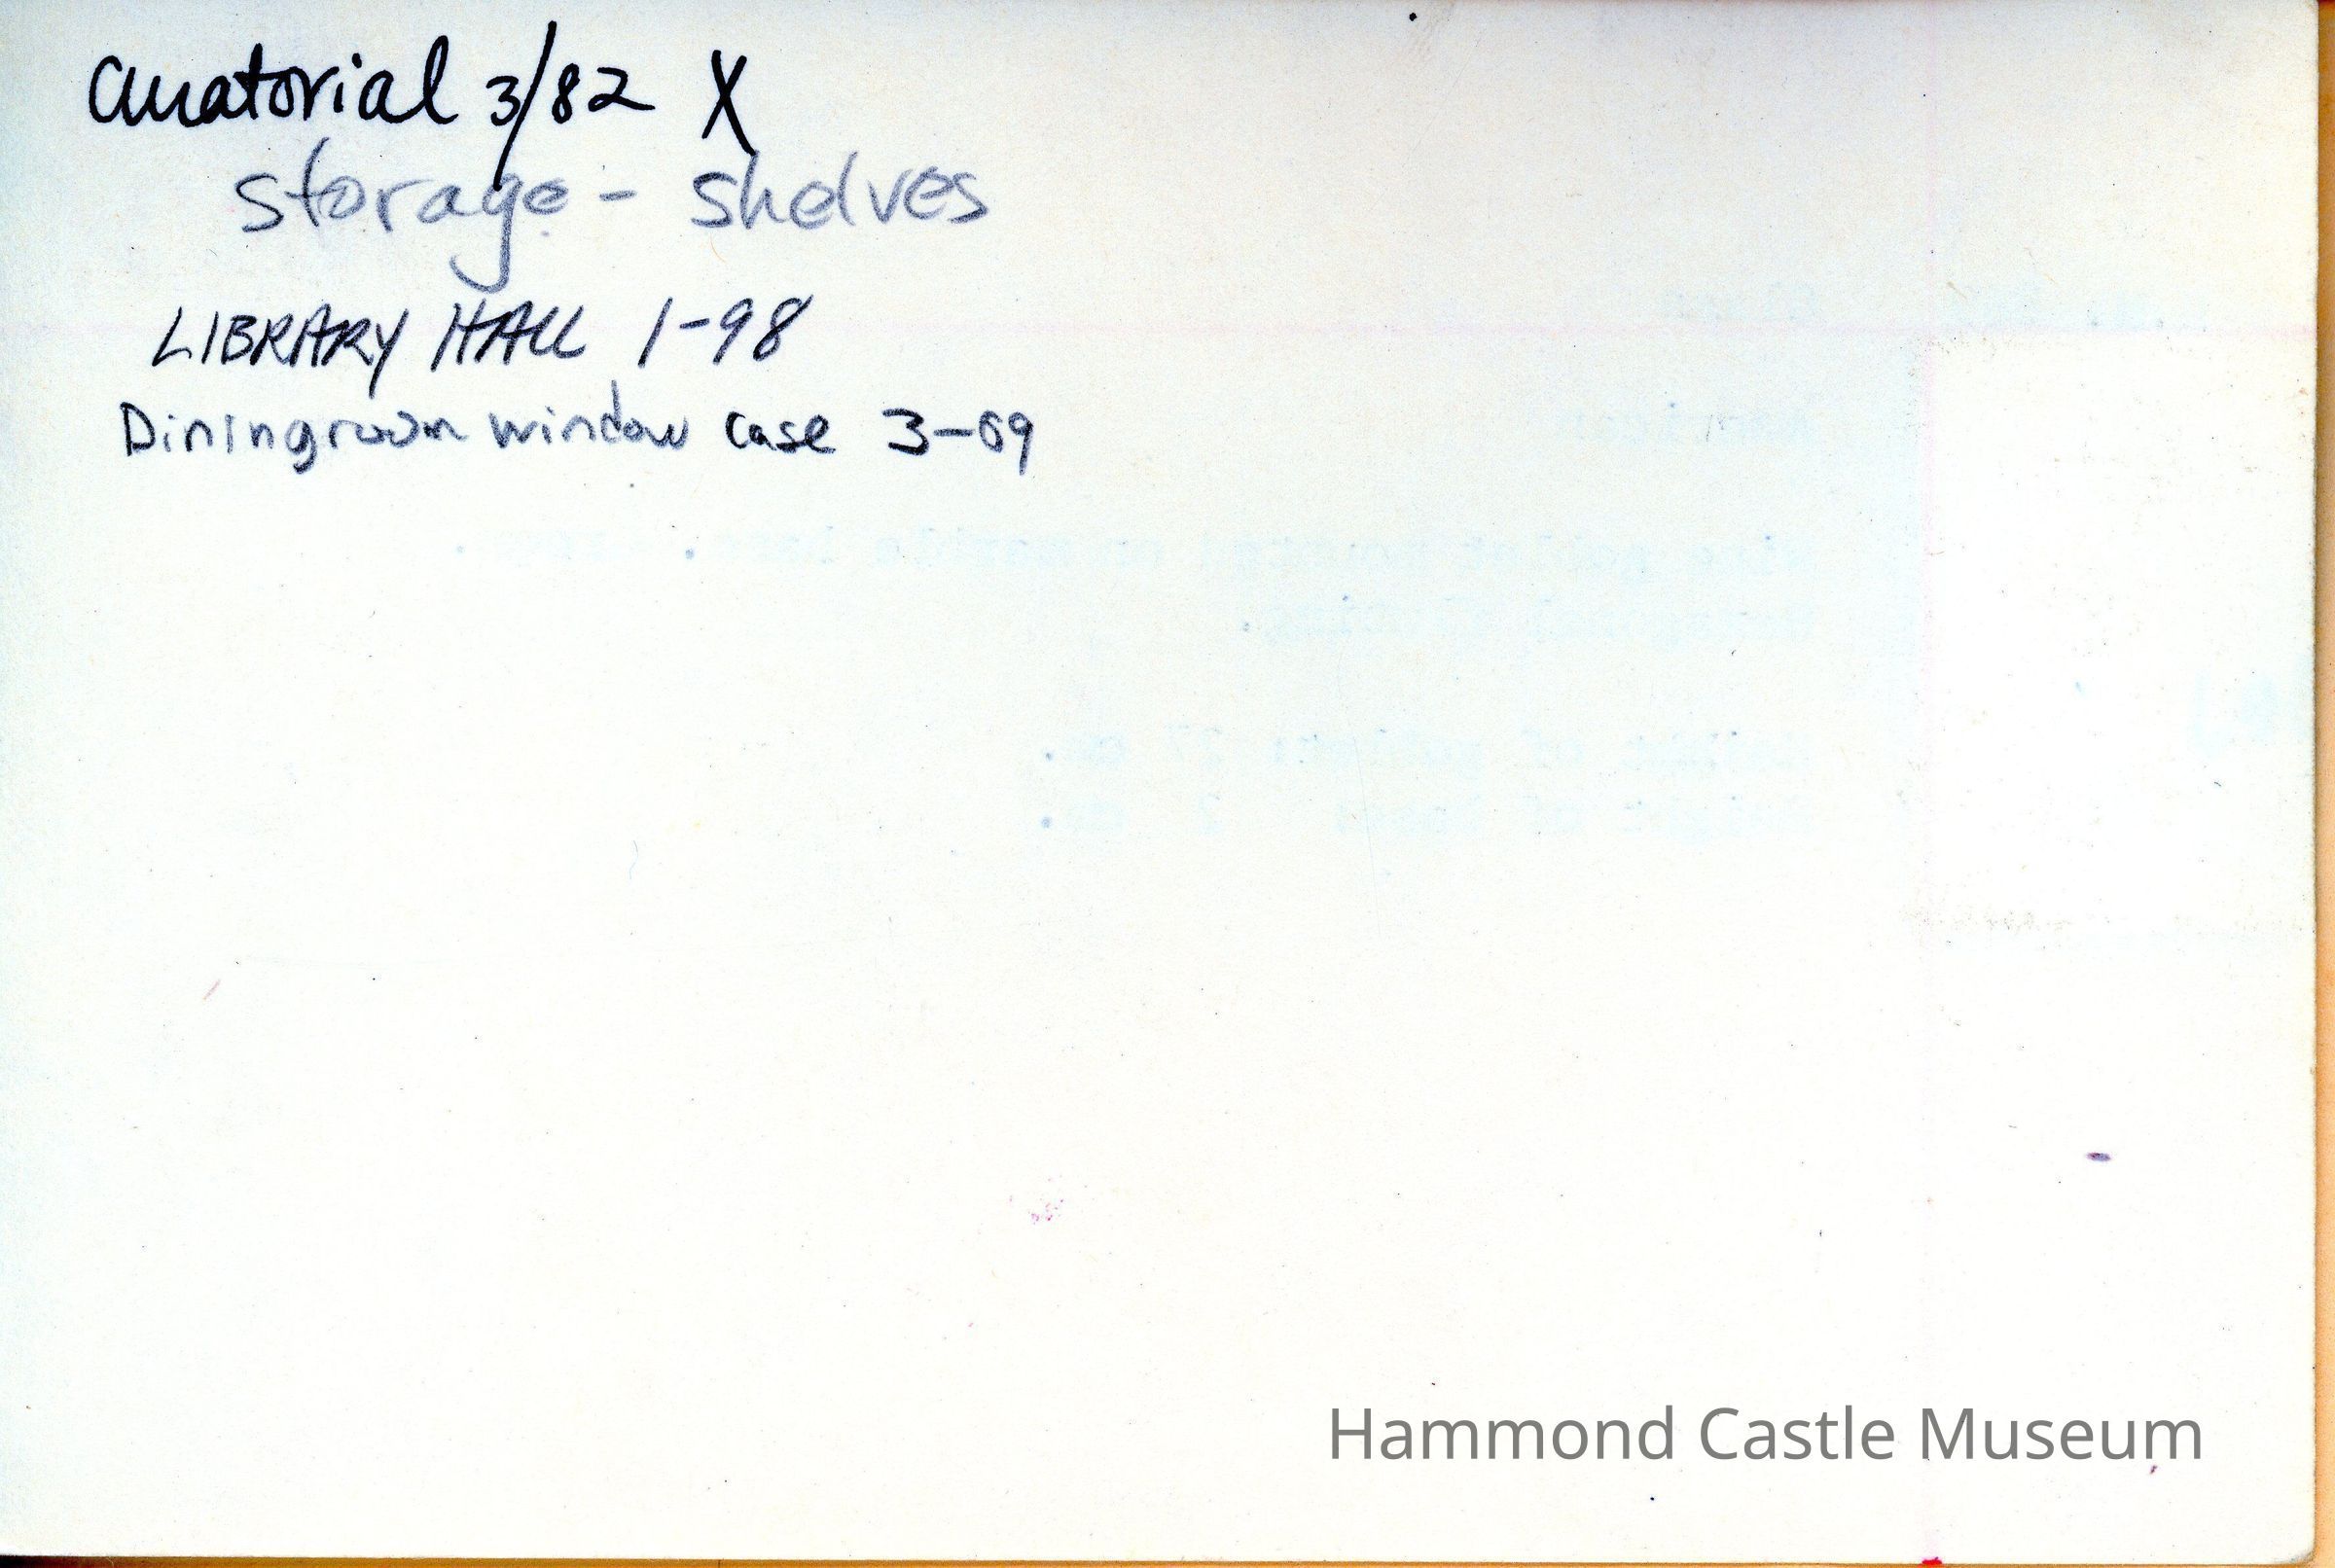 Curatorial 3/82 X
Storage - Shelves
LIBRARY HALL 1-98
Diningroom window case 3-09
Hammond Castle Museum